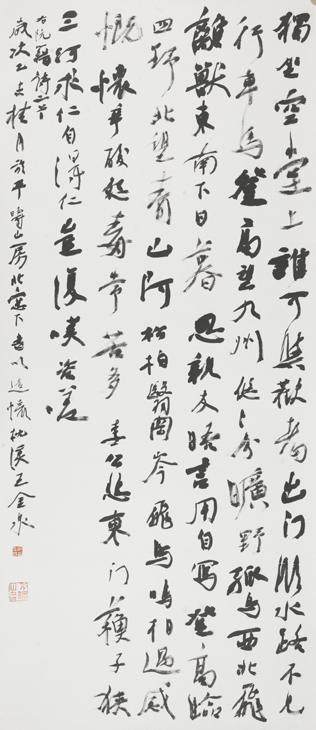 獨坐空堂上誰可與歡者出門臨永路不見
行車馬登高望九州悠悠分曠野孤鳥西北飛
離獸東南下日暮思親友晤言用自寫登高臨
四野北望青山阿松柏翳岡岑飛鳥鳴相過感
慨懷辛酸怨毒常苦多李公悲東門蘇子狹
三河求仁自得仁豈復嘆咨嗟
右阮籍詩二首
歲次乙桂月於平山房北窗下書以遣懷王金泉